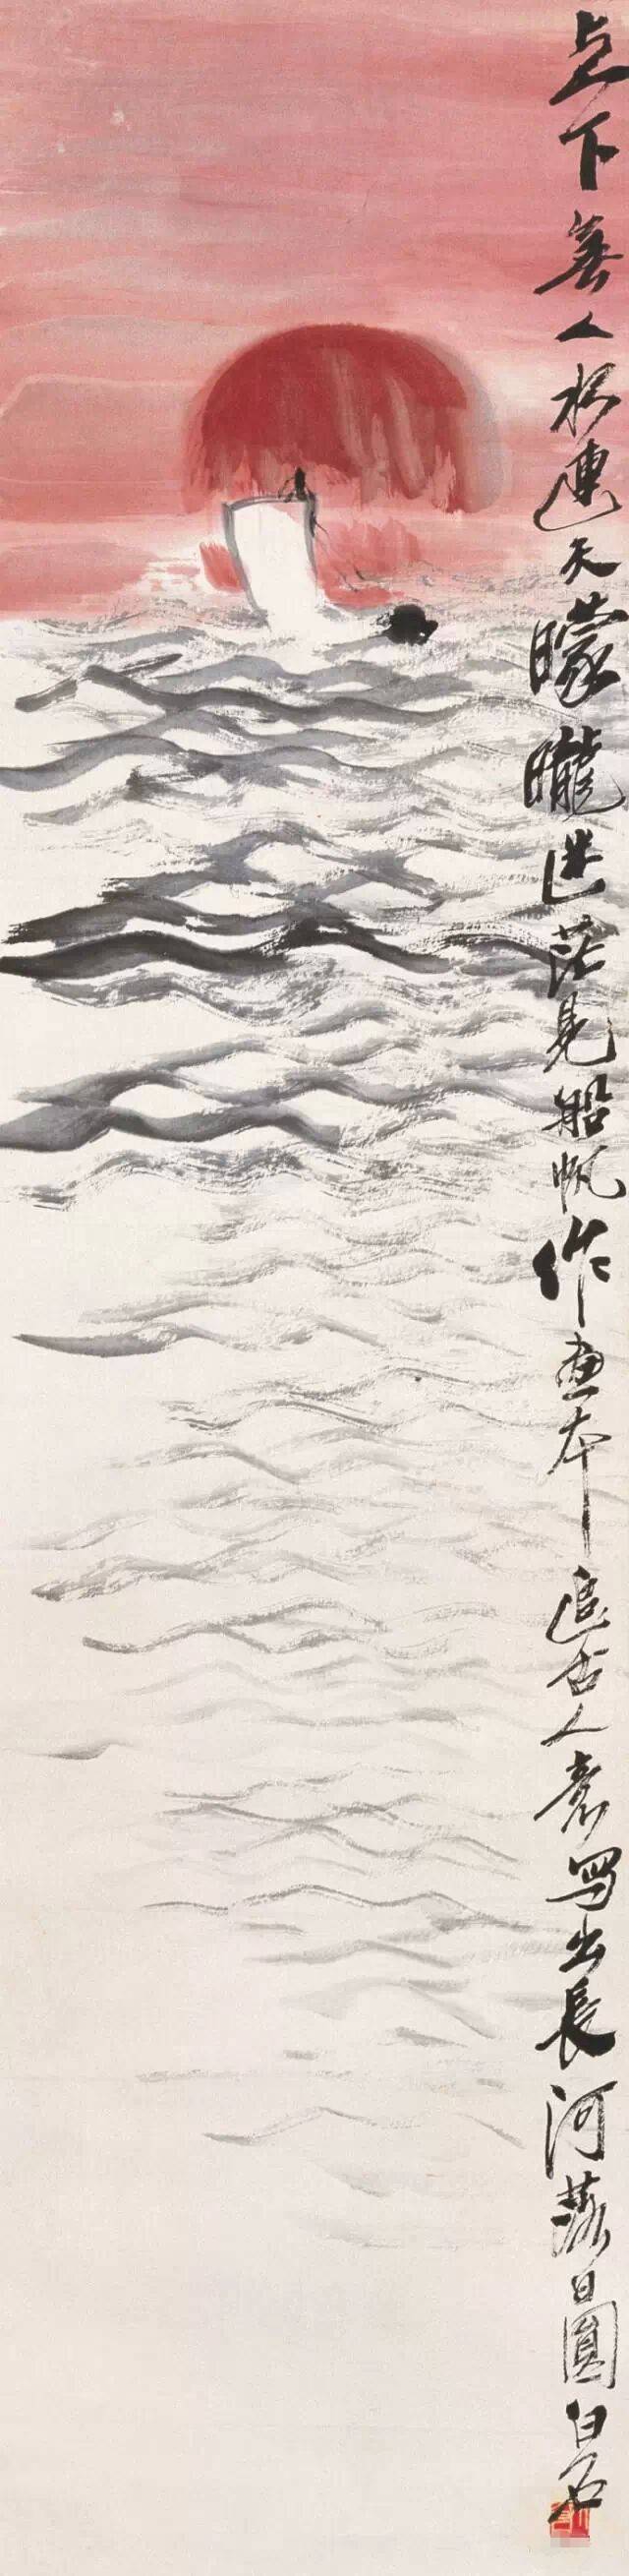 上下無人水連天矇矓迷茫見船帆作画本追古人意寫出長河落日圓白石